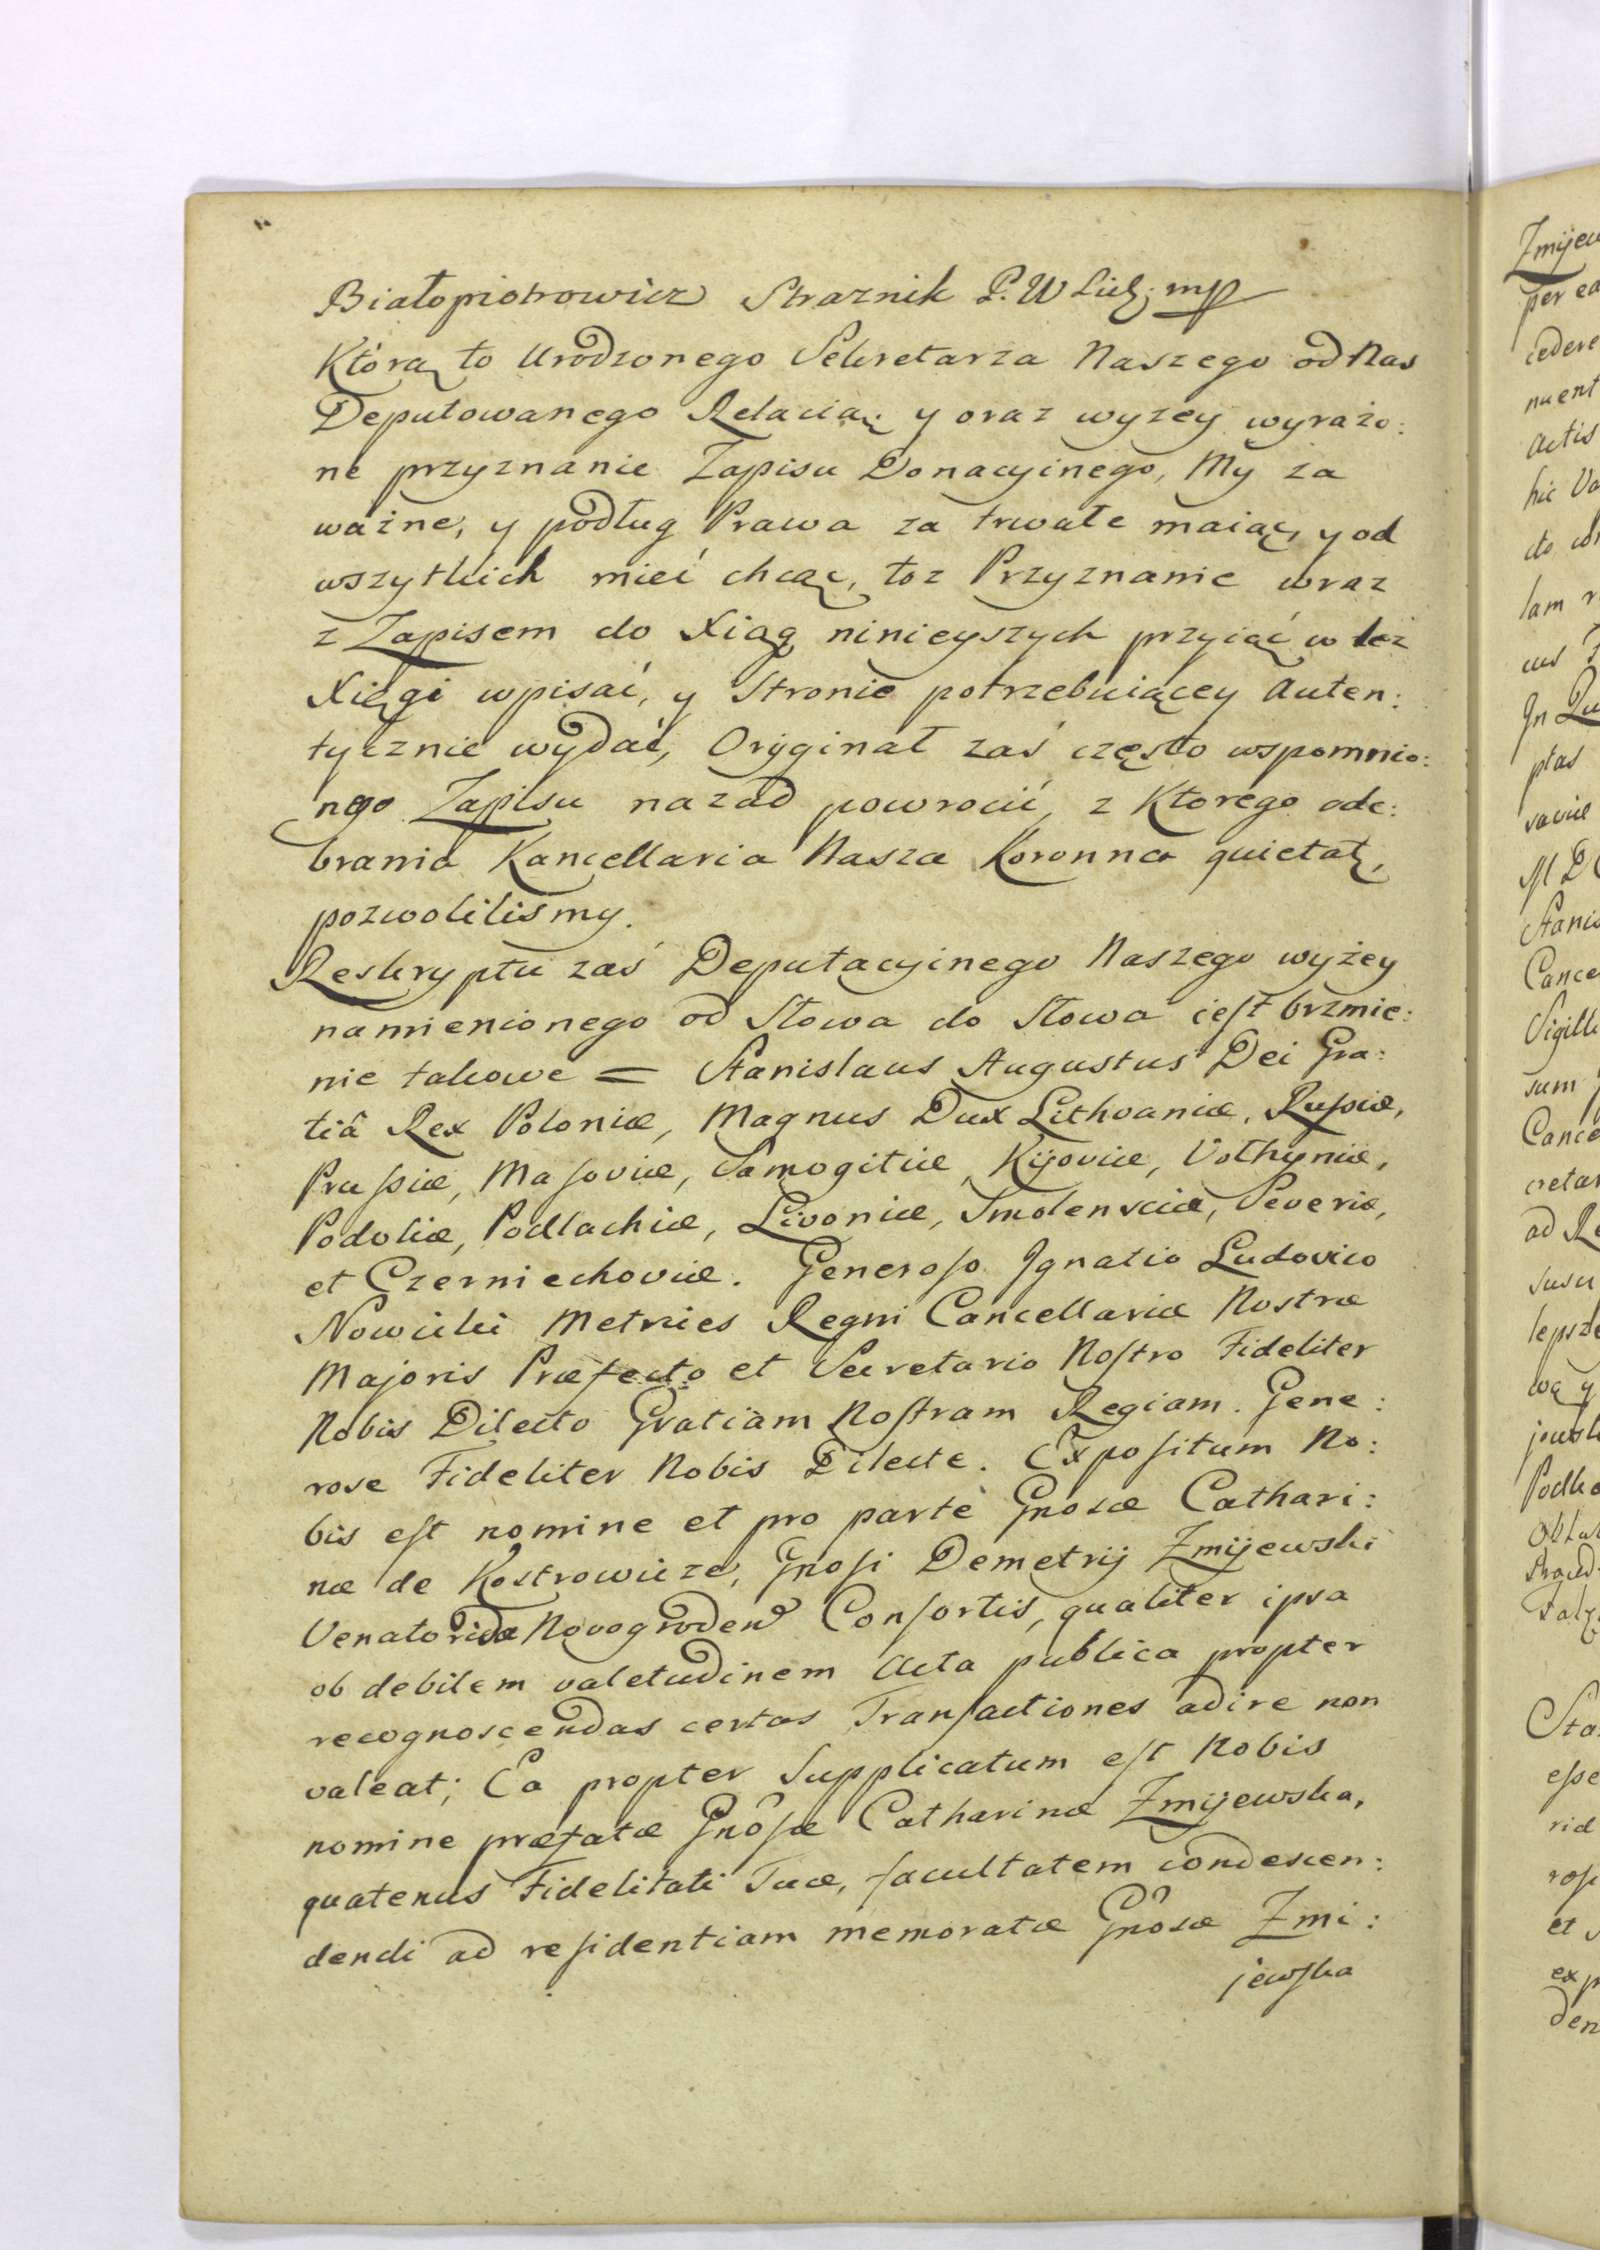 Białopiotrowicz Straznik P. W Lidz: mp
Którą to Urodzonego Sekretarza Naszego od Nas
Deputowanego Relacią, y oraz wyzey wyrażo:
ne przyznanie Zapisu Donacyinego, My za
ważne, y podług Prawa za trwałe maiąc, y od
wszytkich mieć chcąc, toz Przyznanie wraz
z Zapisem do Xiąg ninieyszych przyiąć w też
Xięgi wpisać, y Stronie potrzebuiącey Auten:
tycznie wydać, Oryginał zaś często wspomnio:
nego Zapisu nazad powrocić, z Ktorego ode:
brania Kancellaria Nasza Koronna quietat,
pozwolilismy.
Reskryptu zaś Deputacyinego Naszego wyżey
namienionego od Słowa do Słowa iest brzmie:
nie takowe = Stanislaus Augustus Dei Gra:
tiâ Rex Poloniæ, Magnus Dux Lithvaniæ, Russiæ,
Prussiæ, Masoviæ, Samogitiæ, Kijoviæ, Volhyniæ,
Podoliæ, Podlachiæ, Livoniæ, Smolensciæ, Severiæ,
et Czerniechoviæ. Generoso Ignatio Ludovico
Nowicki Metrices Regni Cancellariæ Nostræ
Majoris Præfecto et Secretario Nostro Fideliter
Nobis Dilecto Gratiam Nostram Regiam. Gene:
rose Fideliter Nobis Dilecte. Expositum No:
bis est nomine et pro parte Gnosæ Cathari:
næ de Kostrowicze, Gnosi Demetrij Zmijewski
Venatoridæ Novogroden Consortis, qualiter ipsa
ob debilem valetudinem Acta publica propter
recognoscendas certas Transactiones adire non
valeat; Ea propter Supplicatum est Nobis
nomine præfatæ Gnosæ Catharinæ Zmijewska,
quatenus Fidelitati Tuæ, facultatem condescen:
dendi ad residentiam memoratæ Gnosæ Zmi:
jewska